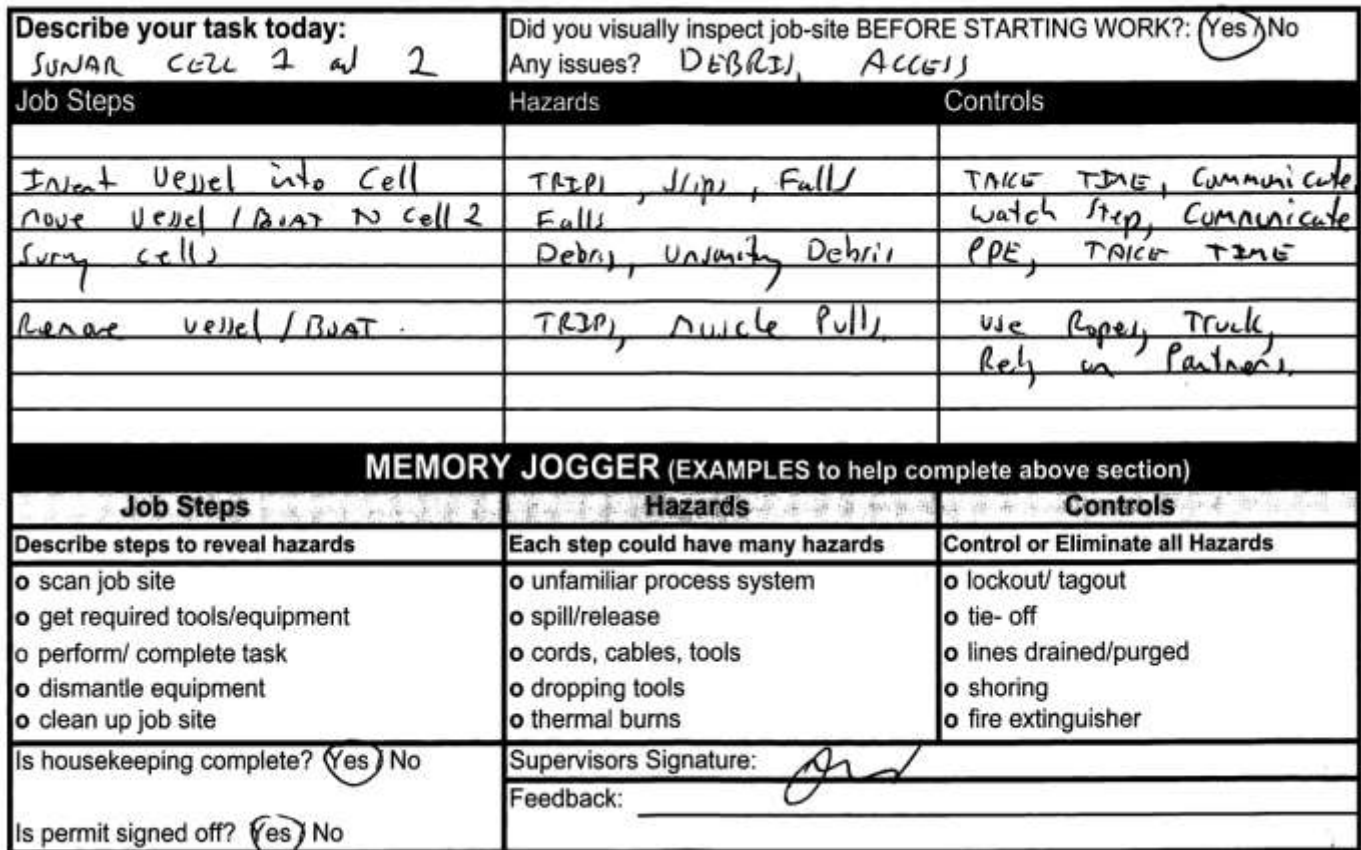 Describe your task today:
SUNAR CELL 1 and 2
Did you visually inspect job-site BEFORE STARTING WORK?: Yes / No
Any issues? DEBRIS, ACCESS
Job Steps Hazards Controls
Insert Vessel into Cell TRIPS, Slips, Falls TAKE TIME, Communicate
Move Vessel / BOAT to Cell 2 Falls Watch Step, Communicate
Survey cells Debris, Unsanitary Debris PPE, TAKE TIME
Remove vessel / BOAT. TRIPS, Muscle Pulls, use Ropes, Truck,
Rely on Partners.
MEMORY JOGGER (EXAMPLES to help complete above section)
Job Steps Hazards Controls
Describe steps to reveal hazards Each step could have many hazards Control or Eliminate all Hazards
o scan job site o unfamiliar process system o lockout/ tagout
o get required tools/equipment o spill/release o tie- off
o perform/ complete task o cords, cables, tools o lines drained/purged
o dismantle equipment o dropping tools o shoring
o clean up job site o thermal burns o fire extinguisher
Is housekeeping complete? Yes / No Supervisors Signature:
Feedback:
Is permit signed off? Yes / No